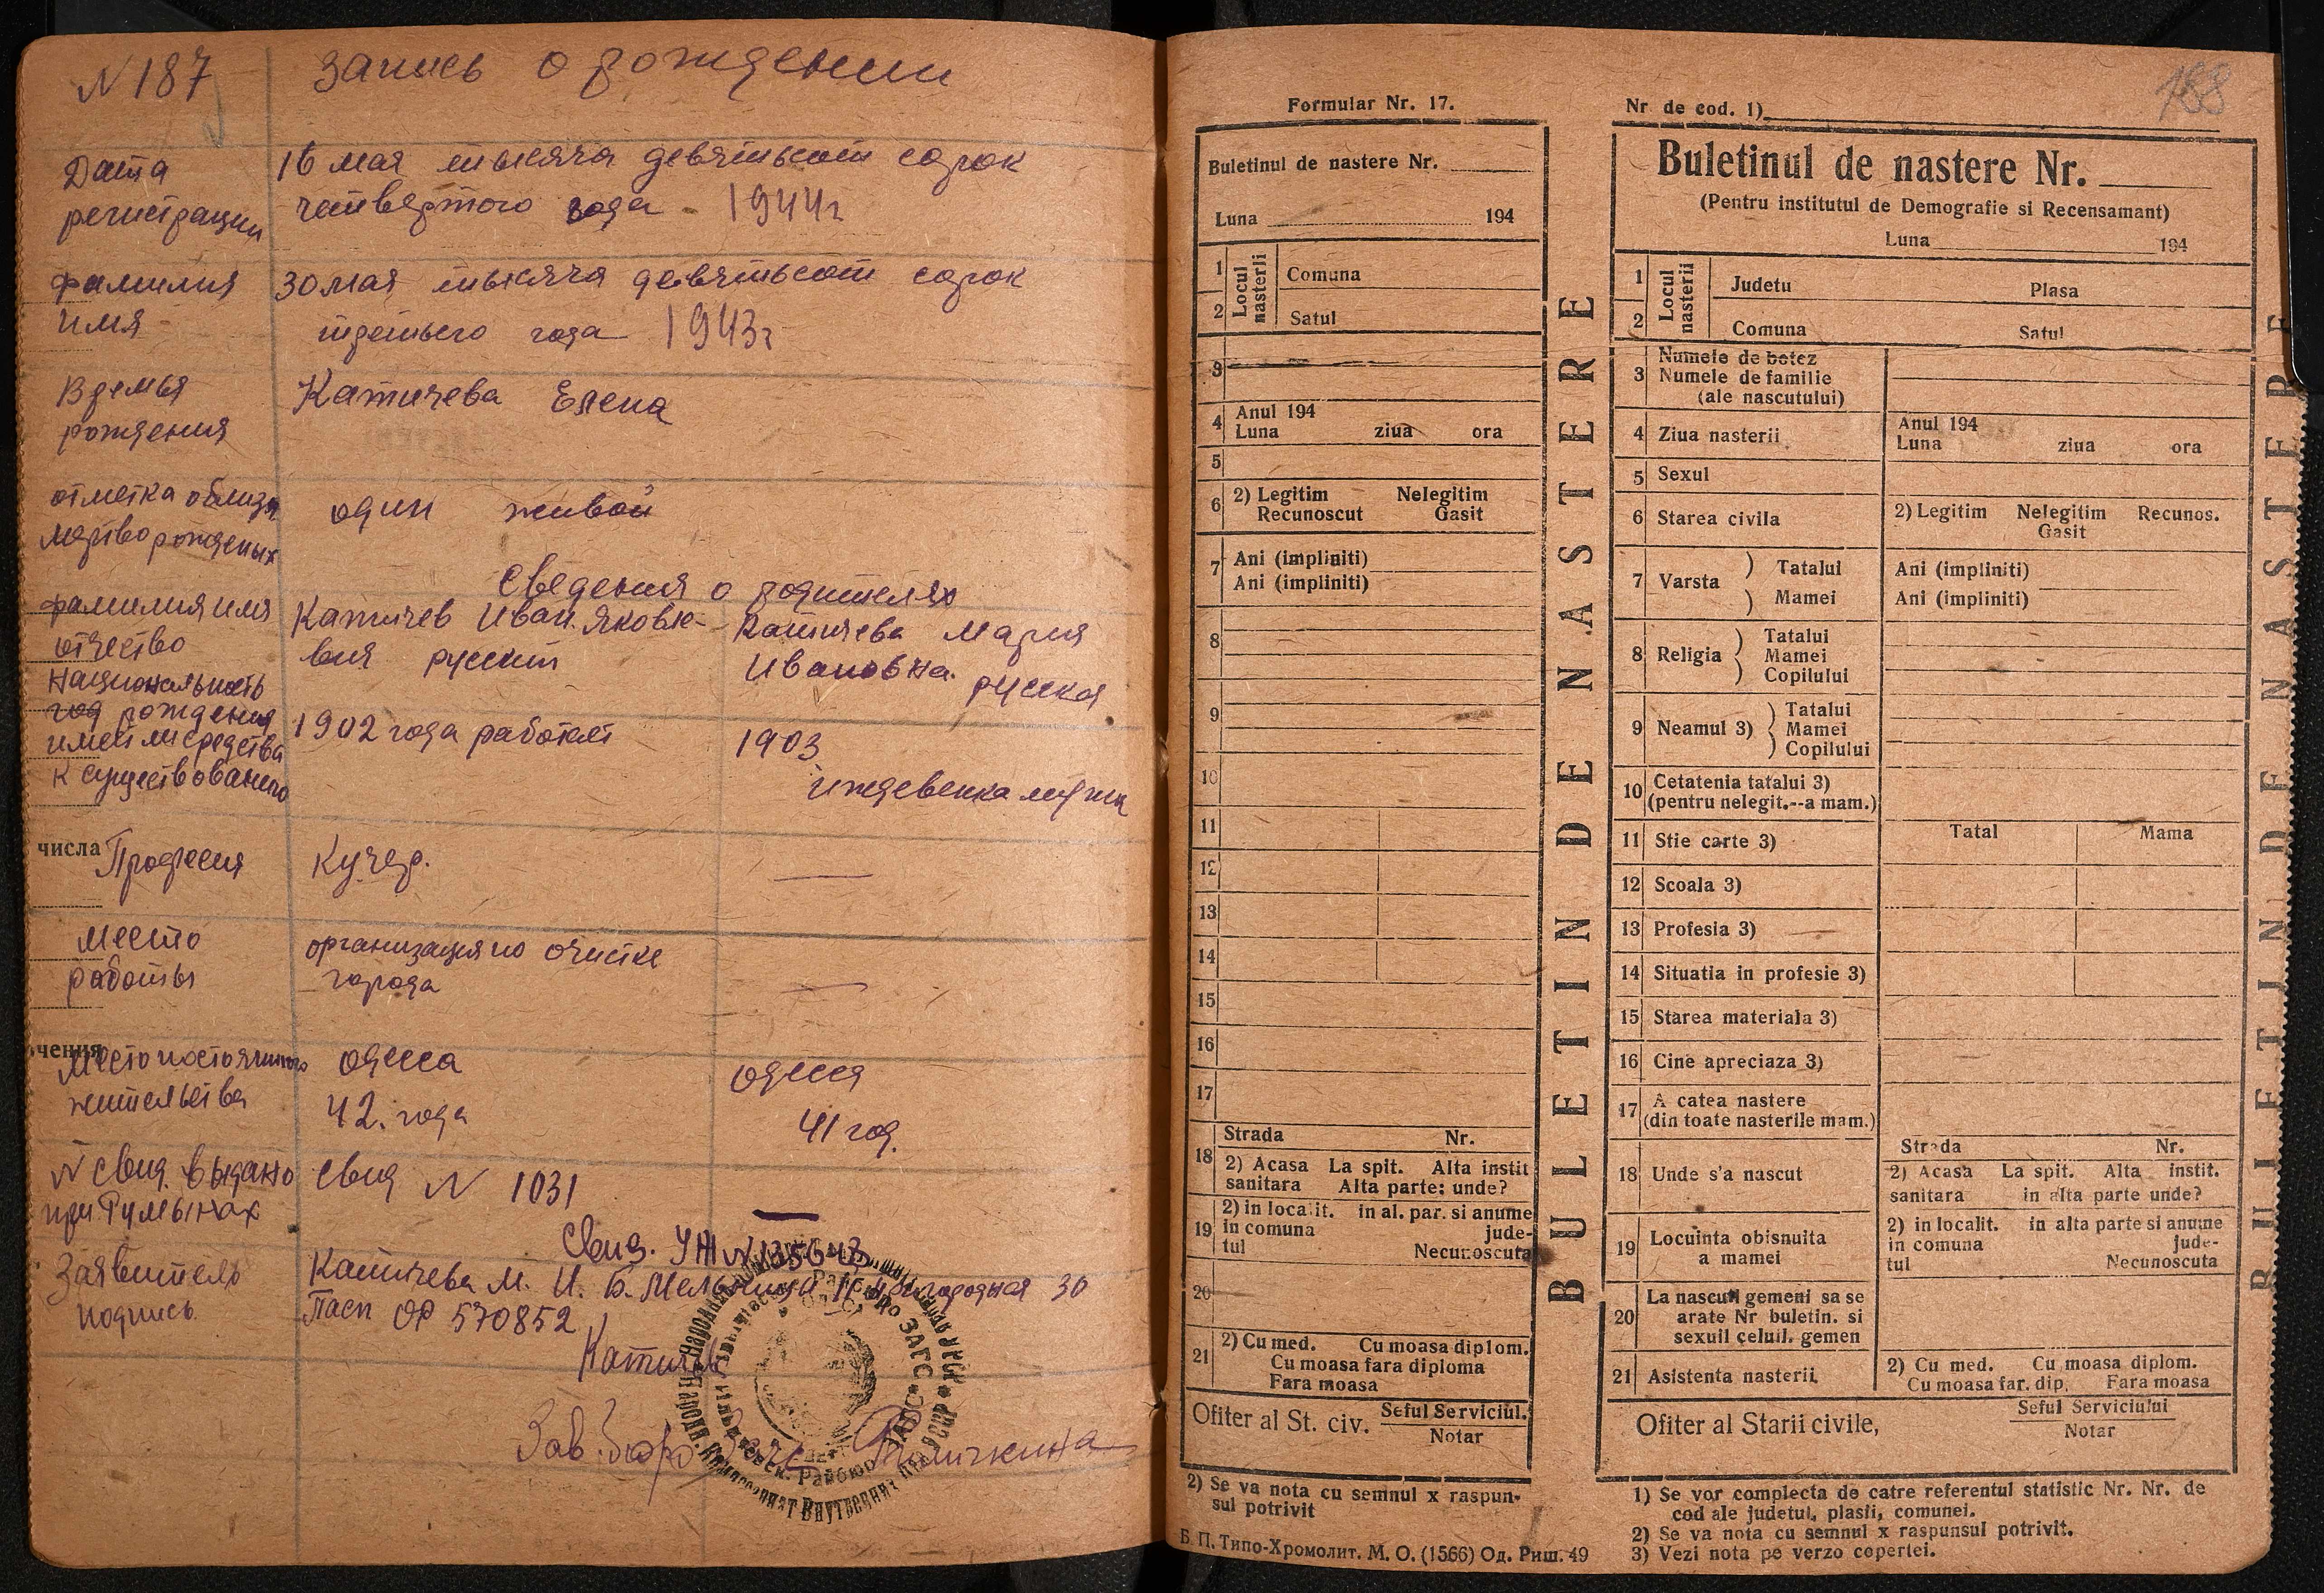 N 187
Запись о рождении
Дата регистрации
16 мая тысяча девятьсот сорок
четвертого года 1944г
фамилия имя
30 мая тысяча девятьсот сорок
третьего года 1943г
Время рождения
Катичева Елена
отметка о близн
мертворожденых
один живой
Сведения о родителях
фамилия имя
отчество
национальность
год рождения
имел ли средства
к существованию
Катичев Иван Яковле-
вич русский
1902 года работает
Катичева Мария
Ивановна русская
1903
иждевенка мужа
числа
Професия
Кучер.
Место
работы
организация по очистке
города
чения
Место постоянного
жительства
Одесса
42 года
Одесса
41 год.
N свид. выдано
при Румынах
Свид N 1031
Свид. УЖ N
Заявитель
подпись
Катичева М. И. Б. 30
Пасп ОР 570852
Зав. бюро
188
Formular Nr. 17.
Buletinul de nastere Nr.
Luna 194
1 2 Locul nasterii
Comuna
Satul
3
4 Anul 194
Luna ziua ora
5
6 2) Legitim Nelegitim
Recunoscut Gasit
7 Ani (impliniti)
Ani (impliniti)
8
9
10
11
12
13
14
15
16
17
18 Strada Nr.
2) Acasa La spit. Alta instit
sanitara Alta parte: unde?
19 2) in localit. in al. par. si anume
in comuna jude-
tul Necunoscuta
20
21 2) Cu med. Cu moasa diplom.
Cu moasa fara diploma
Fara moasa
Ofiter al St. civ. Seful Serviciul.
Notar
2) Se va nota cu semnul x raspun-
sul potrivit
Б. П. Типо-Хромолит. М. О. (1566) Од. Риш. 49
BULETIN DE NASTERE
Nr de cod. 1)
Buletinul de nastere Nr.
(Pentru institutul de Demografie si Recensamant)
Luna 194
1 2 Locul nasterii
Judetu Plasa
Comuna Satul
3 Numele de botez
Numele de familie
(ale nascutului)
4 Ziua nasterii Anul 194
Luna ziua ora
5 Sexul
6 Starea civila 2) Legitim Nelegitim Recunos.
Gasit
7 Varsta Tatalui Ani (impliniti)
Mamei Ani (impliniti)
8 Religia Tatalui
Mamei
Copilului
9 Neamul 3) Tatalui
Mamei
Copilului
10 Cetatenia tatalui 3)
(pentru nelegit.--a mam.)
11 Stie carte 3) Tatal Mama
12 Scoala 3)
13 Profesia 3)
14 Situatia in profesie 3)
15 Starea materiala 3)
16 Cine apreciaza 3)
17 A catea nastere
(din toate nasterile mam.)
18 Unde s'a nascut Strada Nr.
2) Acasa La spit. Alta instit.
sanitara in alta parte unde?
19 Locuinta obisnuita
a mamei
2) in localit. in alta parte si anume
in comuna jude-
tul Necunoscuta
20 La nascuti gemeni sa se
arate Nr buletin. si
sexuil celuil. gemen
21 Asistenta nasterii 2) Cu med. Cu moasa diplom.
Cu moasa far. dip. Fara moasa
Ofiter al Starii civile, Seful Serviciului
Notar
1) Se vor complecta de catre referentul statistic Nr. Nr. de
cod ale judetul, plasii, comunei.
2) Se va nota cu semnul x raspunsul potrivit.
3) Vezi nota pe verzo copertei.
BULETIN DE NASTERE